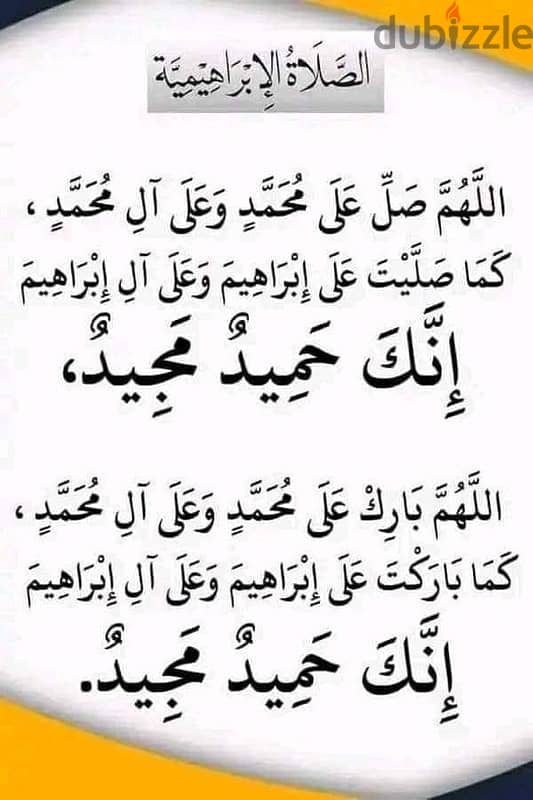 dubizzle
الصَّلَاةُ الإِبْرَاهِيْمِيَّة
اللَّهُمَّ صَلِّ عَلَى مُحَمَّدٍ وَعَلَى آلِ مُحَمَّدٍ ،
كَمَا صَلَّيْتَ عَلَى إِبْرَاهِيمَ وَعَلَى آلِ إِبْرَاهِيمَ
إِنَّكَ حَمِيدٌ مَجِيدٌ،
اللَّهُمَّ بَارِكْ عَلَى مُحَمَّدٍ وَعَلَى آلِ مُحَمَّدٍ ،
كَمَا بَارَكْتَ عَلَى إِبْرَاهِيمَ وَعَلَى آلِ إِبْرَاهِيمَ
إِنَّكَ حَمِيدٌ مَجِيدٌ.